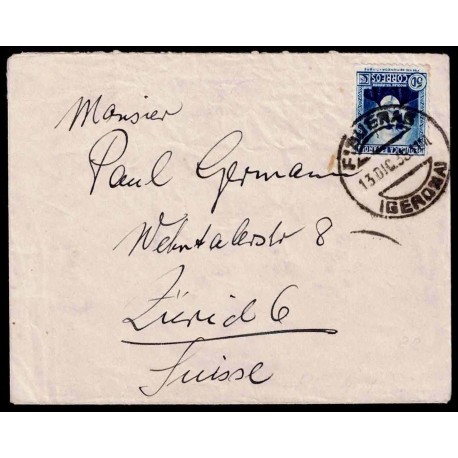 Monsieur
Paul Germann
Wehntalerstr 8
Zürich 6
Suisse
CORREOS
50
FIGUERAS
13 DIC. 35
(GERONA)